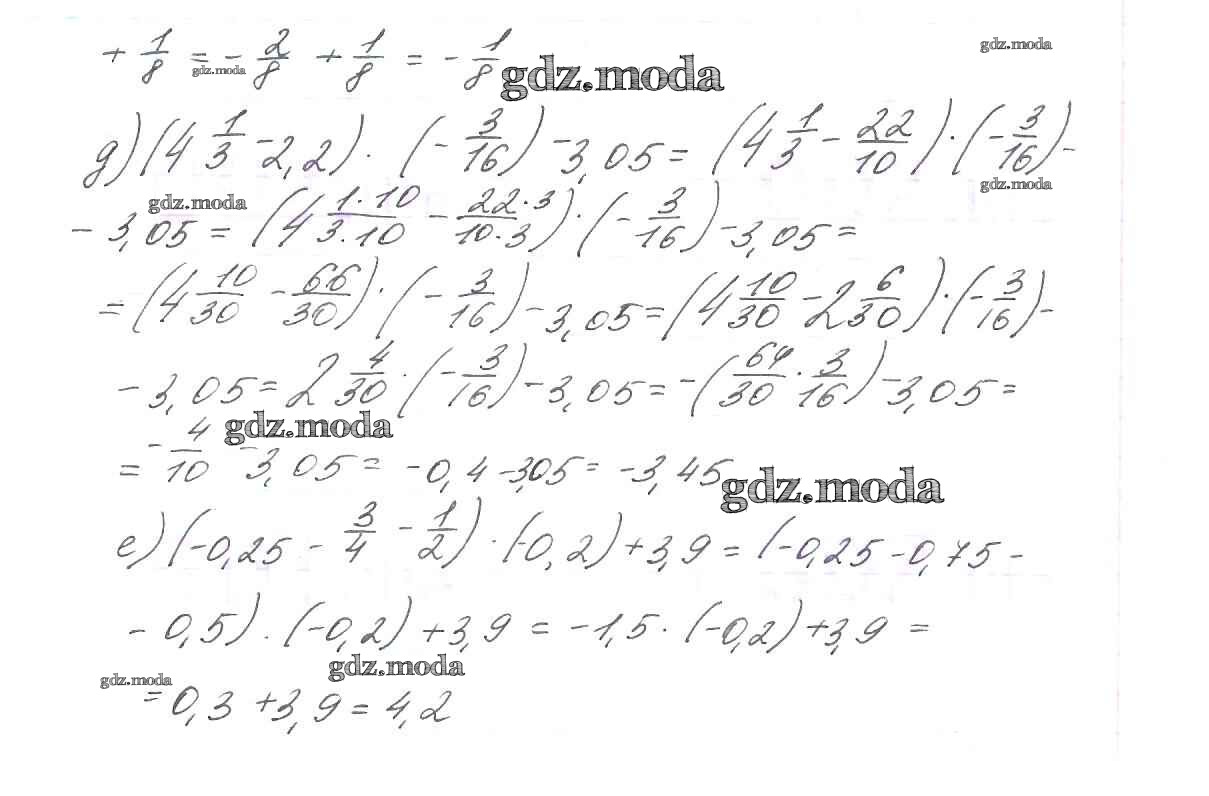 + 1/8 = - 2/8 + 1/8 = - 1/8
gdz.moda
gdz.moda
gdz.moda
д) (4 1/3 - 2,2) · (- 3/16) - 3,05 = (4 1/3 - 22/10) · (- 3/16) -
gdz.moda
gdz.moda
- 3,05 = (4 1·10/3·10 - 22·3/10·3) · (- 3/16) - 3,05 =
= (4 10/30 - 66/30) · (- 3/16) - 3,05 = (4 10/30 - 2 6/30) · (- 3/16) -
- 3,05 = 2 4/30 · (- 3/16) - 3,05 = - (64/30 · 3/16) - 3,05 =
gdz.moda
= - 4/10 - 3,05 = - 0,4 - 3,05 = - 3,45
gdz.moda
е) (-0,25 - 3/4 - 1/2) · (-0,2) + 3,9 = (-0,25 - 0,75 -
- 0,5) · (-0,2) + 3,9 = -1,5 · (-0,2) + 3,9 =
gdz.moda
gdz.moda
= 0,3 + 3,9 = 4,2